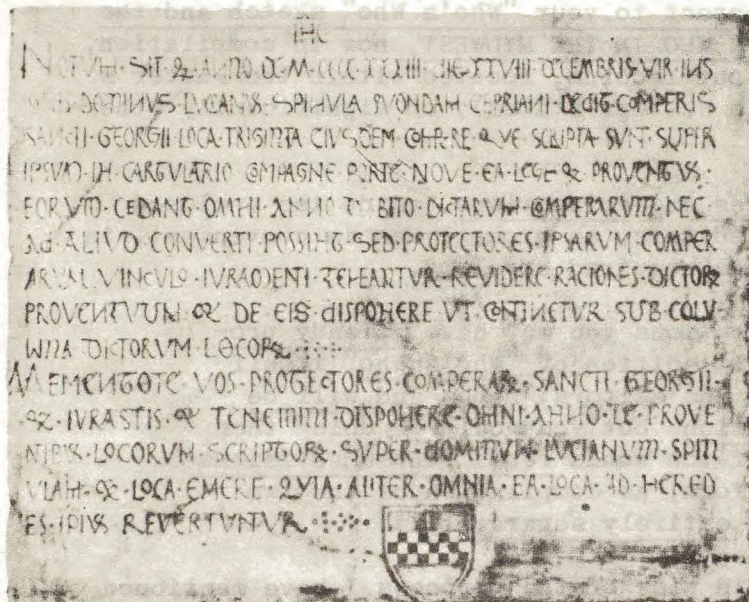 to your "Who's Who" sketch and the
IHC
NOTVM · SIT · QZ · ANNO · D · M · CCCC · XXXIII · DIE · XXVIII · DECEMBRIS · VIR · INS
DOMINVS · LVCANVS · SPINVLA · QVONDAM · CEPRIANI · DEDIT · COMPERIS
SANCTI · GEORGII · LOCA · TRIGINTA · EIVSDEM · COMPERE · QVE · SCRIPTA · SVNT · SVPER
IPSVM · IN · CARTVLARIO · COMPAGNE · PORTE · NOVE · EA · LEGE · QZ · PROVENTVS ·
EORVM · CEDANT · OMNI · ANNO · DEBITO · DICTARVM · COMPERARVM · NEC
AD · ALIVD · CONVERTI · POSSINT · SED · PROTECTORES · IPSARVM · COMPER
ARVM · VINCVLO · IVRAMENTI · TENEANTVR · REVIDERE · RACIONES · DICTORZ
PROVENTVVM · QZ · DE · EIS · DISPONERE · VT · CONTINETVR · SVB · COLV
MNA · DICTORVM · LOCORZ
MEMENTOTE · VOS · PROTECTORES · COMPERARZ · SANCTI · GEORGII ·
QZ · IVRASTIS · QZ · TENEMINI · DISPONERE · OMNI · ANNO · DE · PROVE
NTIBVS · LOCORVM · SCRIPTORZ · SVPER · DOMINVM · LVCIANVM · SPIN
VLAM · QZ · LOCA · EMERE · QVIA · ALITER · OMNIA · EA · LOCA · AD · HERED
ES · IPIVS · REVERTVNTVR